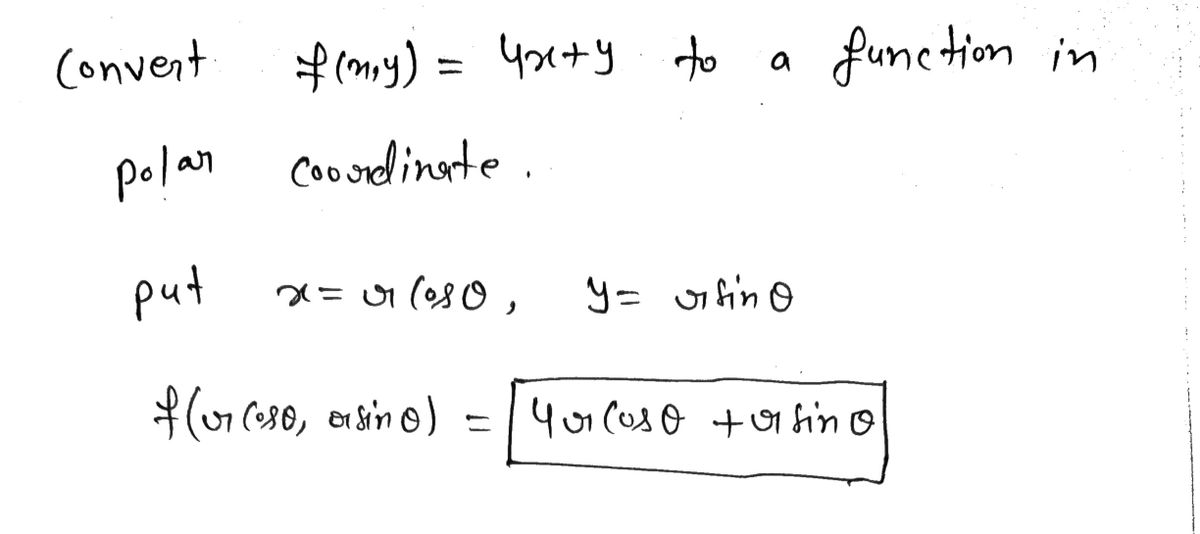 Convert f(x,y) = 4x+y to a function in
polar coordinate.
put x = r cosθ, y = r sinθ
f(r cosθ, r sinθ) = 4r cosθ + r sinθ